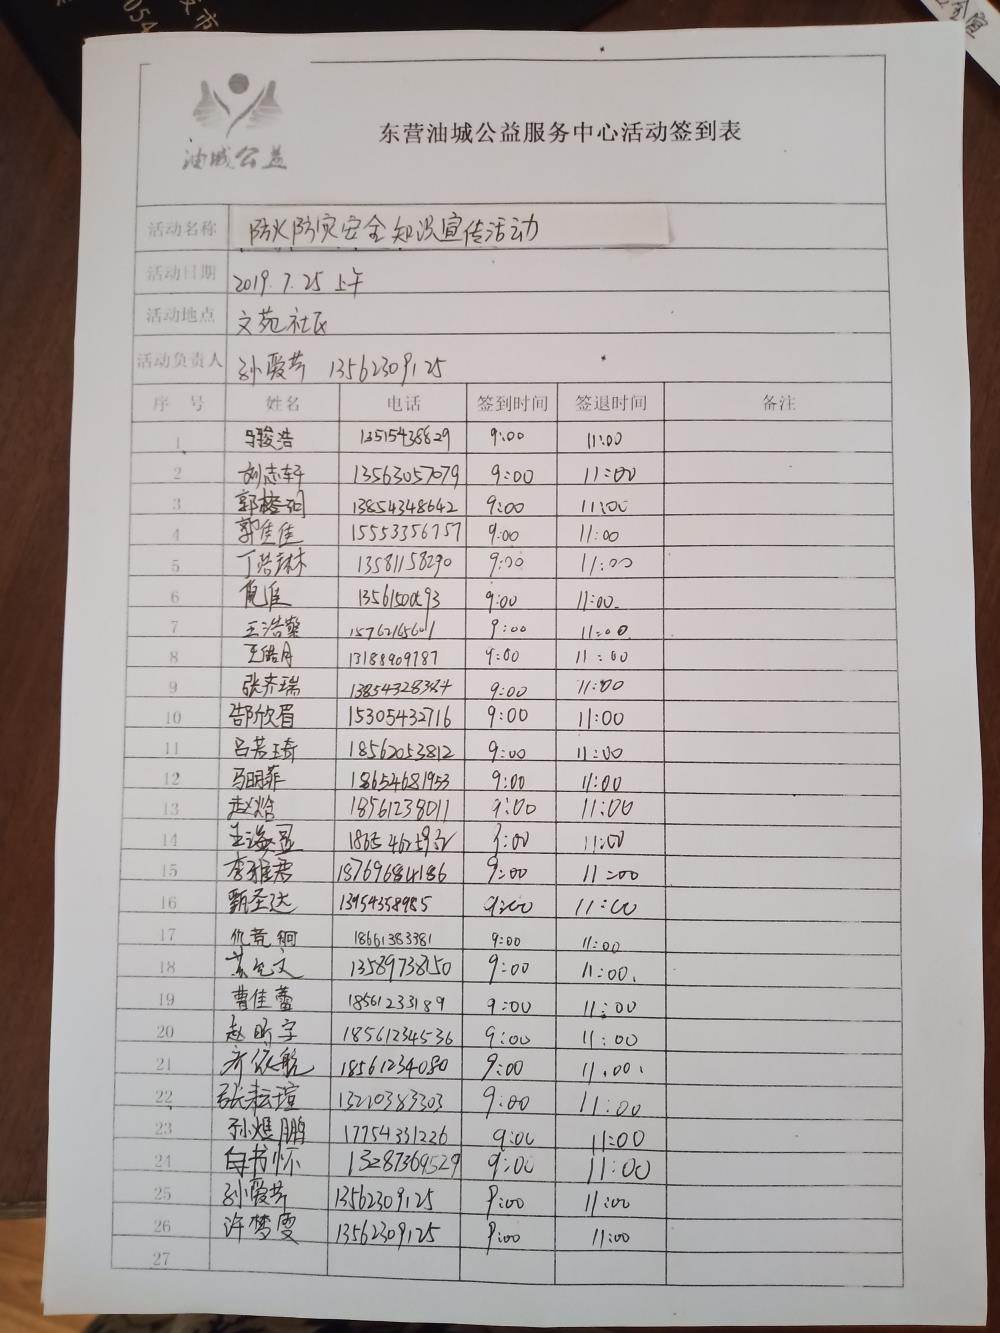 油城公益
东营油城公益服务中心活动签到表
活动名称 防火防灾安全知识宣传活动
活动日期 2019.7.25 上午
活动地点 文苑社区
活动负责人 孙爱芹 13562309125
序号 姓名 电话 签到时间 签退时间 备注
1 马骏浩 13515438829 9:00 11:00
2 刘志轩 13563057079 9:00 11:00
3 郭 13854348642 9:00 11:00
4 郭佳佳 15553356757 9:00 11:00
5 丁浩林 13581158290 9:00 11:00
6 倪 9:00 11:00
7 王浩 15762165601 9:00 11:00
8 王皓月 13188909787 9:00 11:00
9 张齐瑞 9:00 11:00
10 郜欣眉 15305432716 9:00 11:00
11 吕若琦 18562053812 9:00 11:00
12 马明菲 18654681953 9:00 11:00
13 赵焓 18561238011 9:00 11:00
14 王海 9:00 11:00
15 李雅君 18769684186 9:00 11:00
16 甄圣达 13954358985 9:00 11:00
17 18661383381 9:00 11:00
18 文 13589738150 9:00 11:00
19 曹佳蕾 18561233189 9:00 11:00
20 赵昕宇 18561234536 9:00 11:00
21 齐依航 18561234080 9:00 11:00
22 张耘瑄 13210383303 9:00 11:00
23 孙 鹏 17754331226 9:00 11:00
24 白书怀 13287369529 9:00 11:00
25 孙爱芹 13562309125 9:00 11:00
26 许梦雯 13562309125 9:00 11:00
27